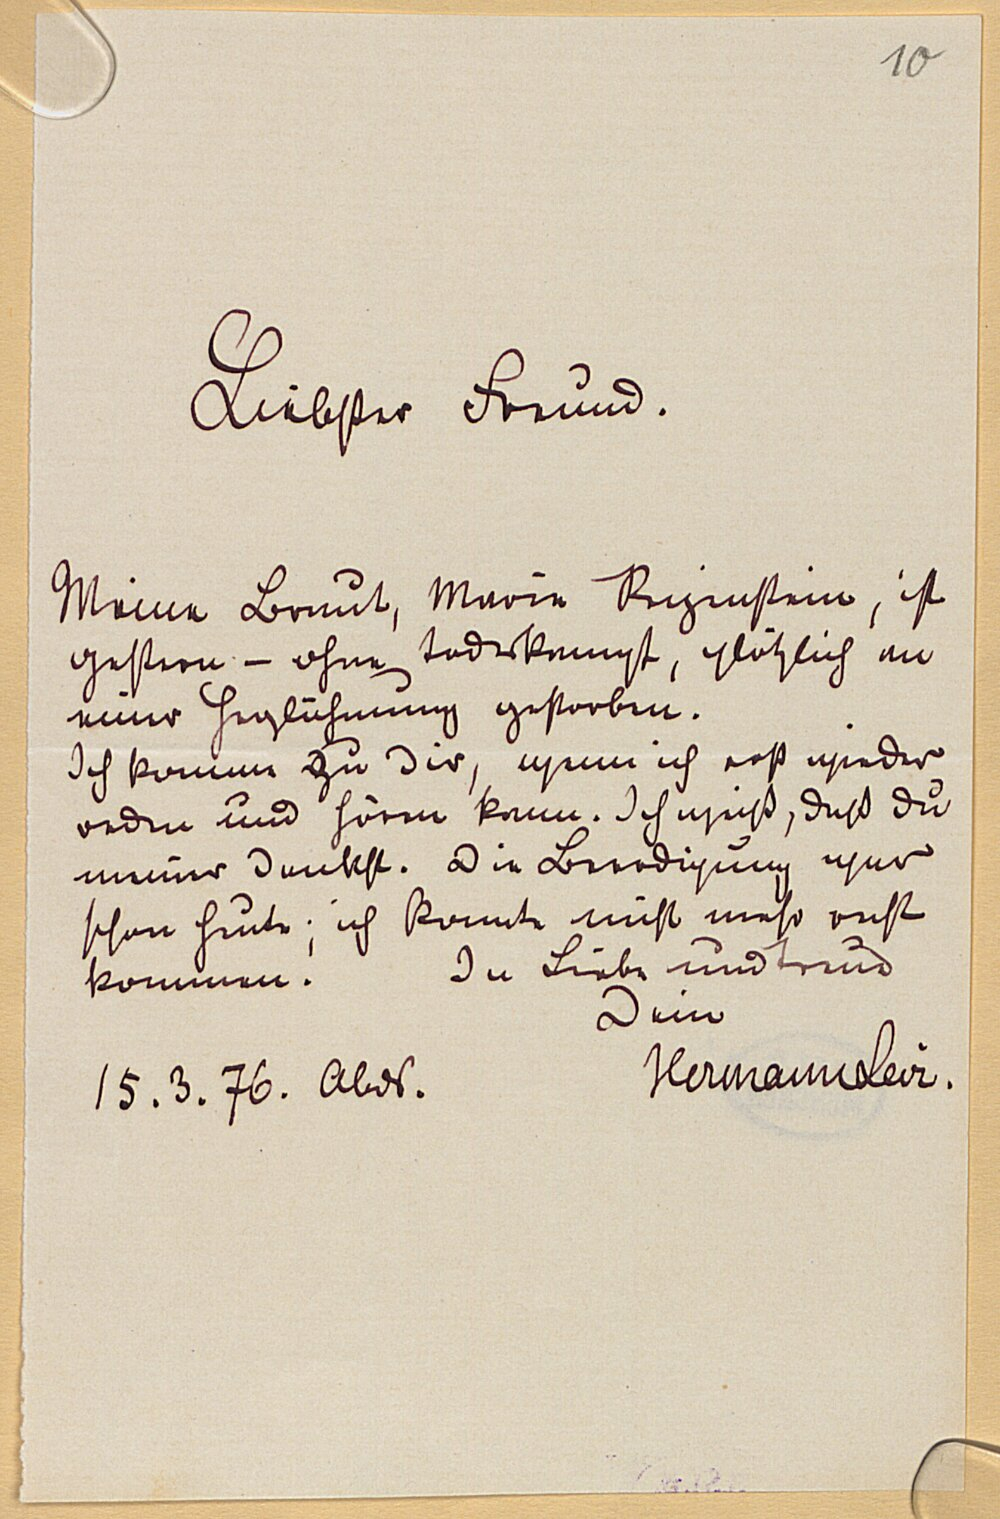 10
Liebster Freund.
Meine Braut, Marie Reizenstein, ist
gestern – ohne Todeskampf, plötzlich an
einer Herzlähmung gestorben.
Ich komme zu Dir, wenn ich erst wieder
reden und hören kann. Ich weiß, daß Du
meiner denkst. Die Beerdigung war
schon heute; ich konnte nicht mehr recht
kommen. In Liebe und Treue
Dein
Hermann Levi.
15.3.76. Abds.